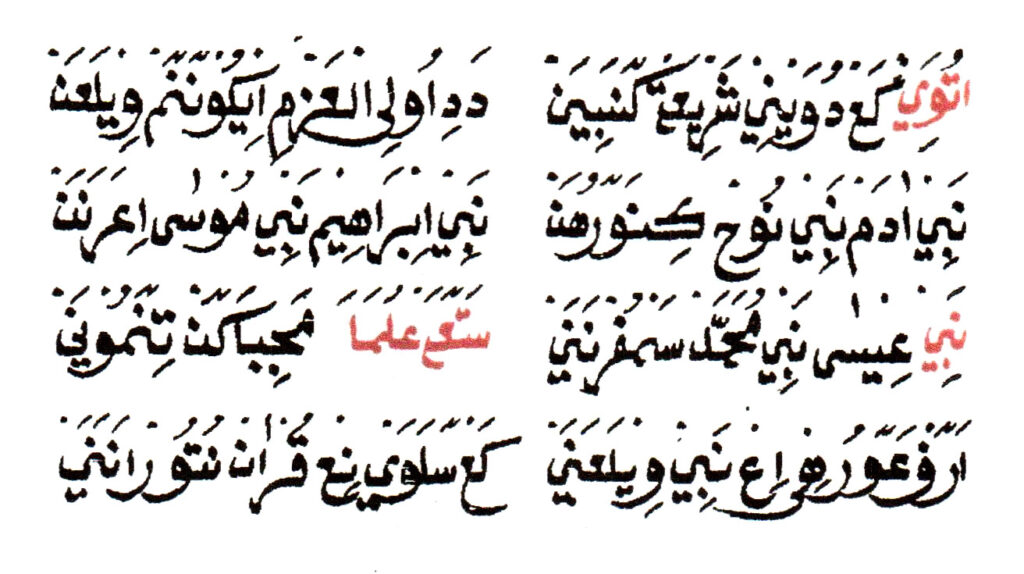 اتوي كع دوويني شريعة كنبين دد اولى العزم ايكوننم ويلعن
نبي ادم نبي نوح كنورهن نبي ابراهيم نبي موسى اعرنن
نبي عيسى نبي محمد سمفرنني ستع علما مجباكن تنموني
ارفوعورهي اع نبي ويلعني كع سلوي نع قران نتورانني